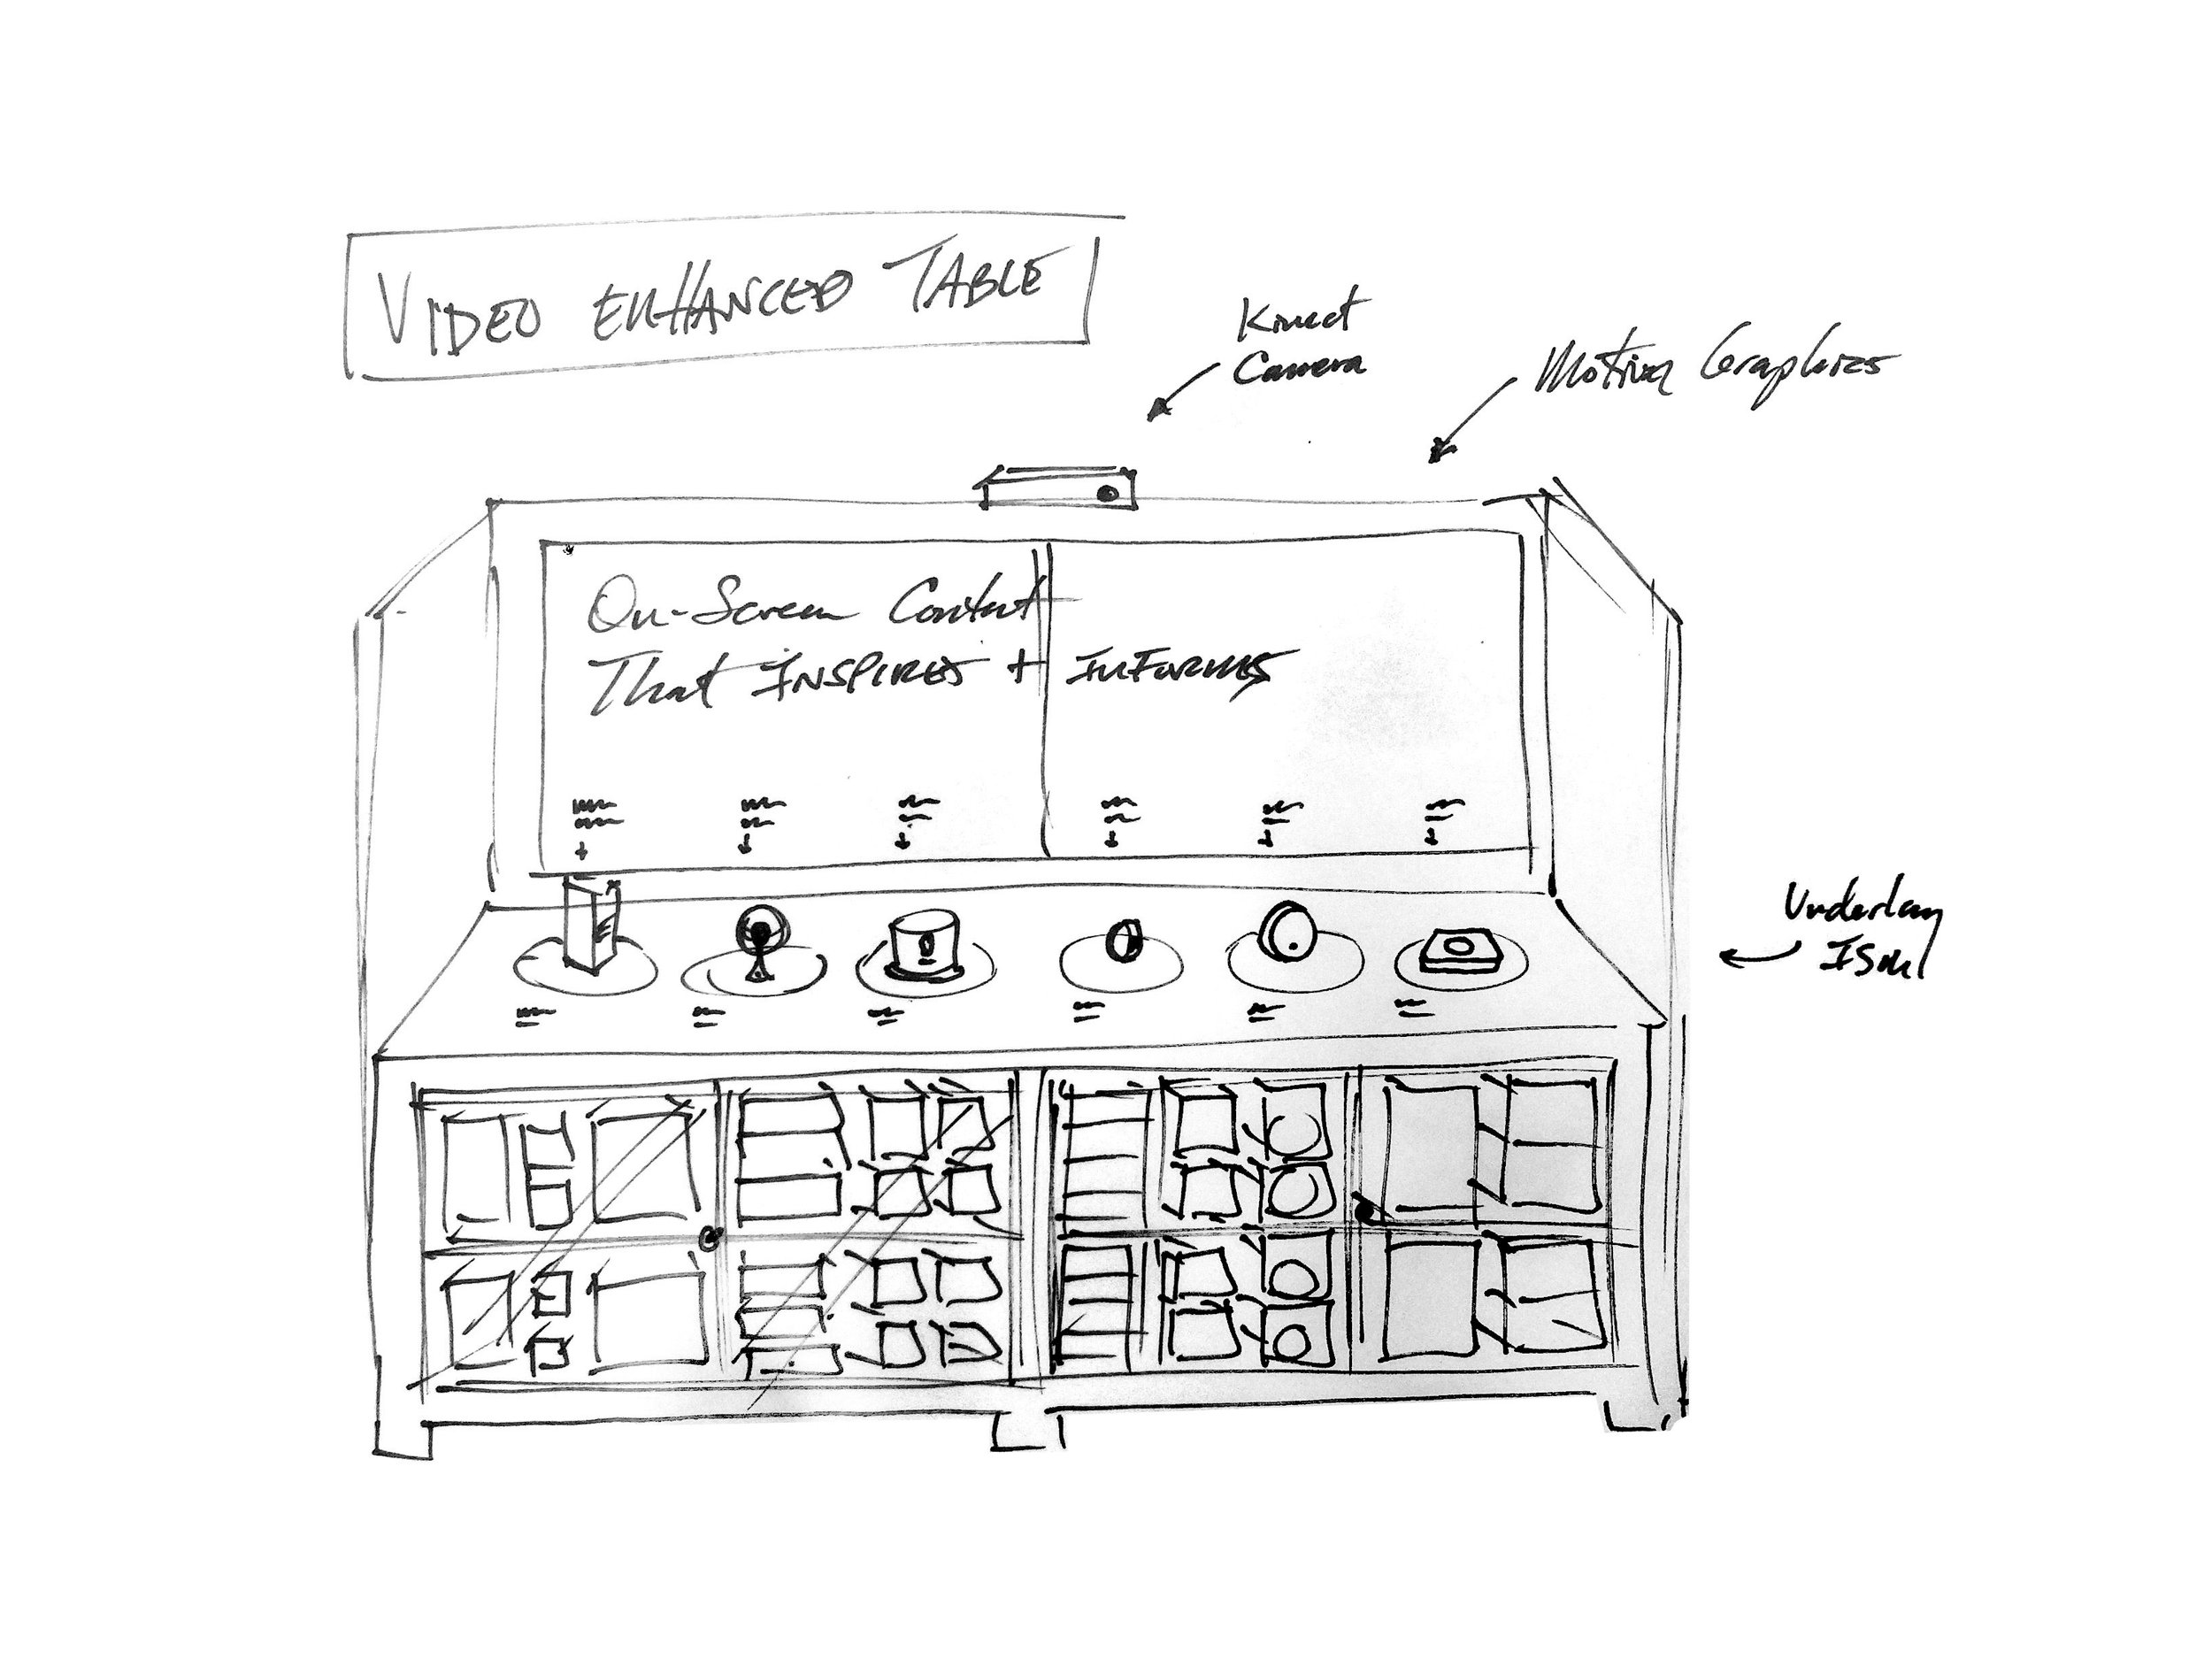 VIDEO ENHANCED TABLE
Kinect
Camera
Motion Graphics
On-Screen Content
That INSPIRES + INFORMS
Underlay